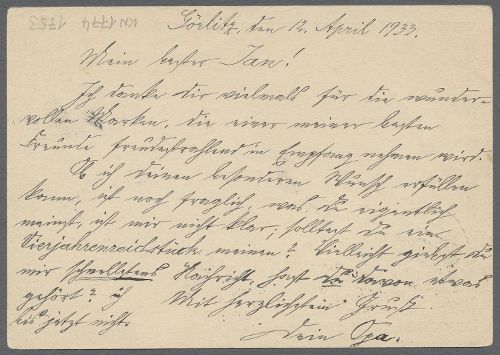 KN 1774
1753
Görlitz, den 12. April 1933.
Mein bester Jan!
Ich danke dir vielmals für die wunder-
vollen Marken, die einer meiner besten
Freunde freudestrahlend in Empfang nehmen wird.
Ob ich deinen besonderen Wunsch erfüllen
kann, ist noch fraglich, was du eigentlich
meinst, ist mir nicht klar, solltest du ein
Vierjahrenreichstück meinen? Vielleicht giebst du
mir schnellstens Nachricht, hast du davon etwas
gehört? ich Mit herzlichstem Gruß
bis jetzt nicht. Dein